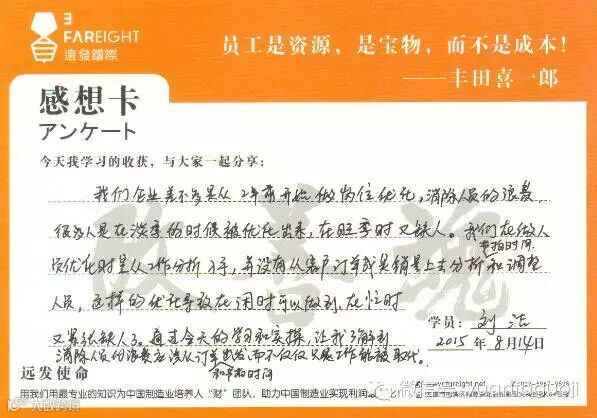 3
FAREIGHT
遠發國際
员工是资源，是宝物，而不是成本！
——丰田喜一郎
感想卡
アンケート
今天我学习的收获，与大家一起分享：
我们企业差不多是从2年前开始做岗位优化，消除人员的浪费，
很多人是在淡季的时候被优化出来，在旺季时又缺人。我们在做人
员优化时是从工作分析入手，并没有从客户订单或是销量上去分析和调整
节拍时间
人员，这样的优化导致在闲时可以做到，在忙时
又紧张缺人了。通过今天的学习和实操，让我了解到
消除人员的浪费应该从订单出发而不仅仅只是工作能被取代。
和节拍时间
学员：刘洁
2015年8月14日
远发使命
用我们用最专业的知识为中国制造业培养人“财”团队，助力中国制造业实现利润
www.fareight.net
大数跨境